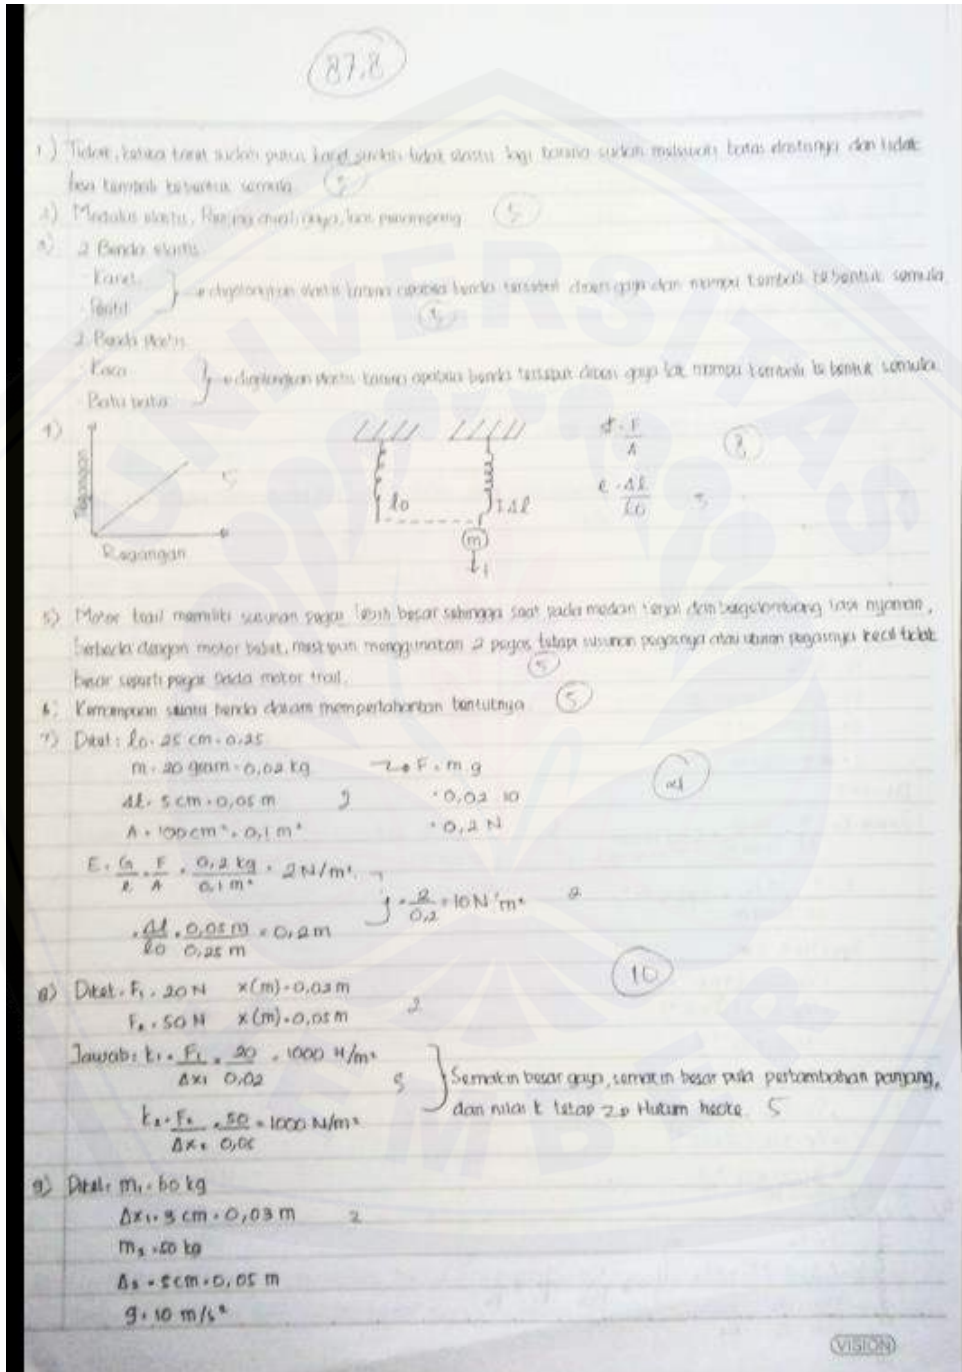 87,8
1.) Tidak, ketika karet sudah putus karet sudah tidak elastis lagi karena sudah melewati batas elastisnya dan tidak
bisa kembali kebentuk semula
2) Modulus elastis, Panjang awal, gaya, luas penampang 5
3) 2 Benda elastis
Karet
digolongkan elastis karena apabila benda tersebut diberi gaya dan mampu kembali kebentuk semula
2 Benda plastis
Kaca
digolongkan plastis karena apabila benda tersebut diberi gaya tak mampu kembali ke bentuk semula.
Batu bata
4) Tegangan
Regangan
5
l0
Δl
m
F
A
8
e = Δl
l0
5) Motor trail memiliki susunan pegas lebih besar sehingga saat pada medan terjal dan bergelombang nyaman,
berbeda dengan motor bebek, meskipun menggunakan 2 pegas tetapi susunan pegasnya atau ukuran pegasnya kecil tidak
besar seperti pegas pada motor trail.
5
6) Kemampuan suatu benda dalam mempertahankan bentuknya 5
7) Diket : l0 = 25 cm = 0,25
m = 20 gram = 0,02 kg → F = m g
Δl = 5 cm = 0,05 m = 0,02 10
A = 100 cm² = 0,1 m² = 0,2 N
E = F/A = 0,2 kg / 0,1 m² = 2 N/m²
= 2/0,2 = 10 N m² 2
= Δl/l0 = 0,05 m / 0,25 m = 0,2 m
10
8) Diket = F1 = 20 N x(m) = 0,02 m
F2 = 50 N x(m) = 0,05 m 2
Jawab : k1 = F1/Δx1 = 20/0,02 = 1000 N/m² 5
Semakin besar gaya, semakin besar pula pertambahan panjang,
dan nilai k tetap → Hukum hooke 5
k2 = F2/Δx2 = 50/0,05 = 1000 N/m²
9) Diket : m1 = 60 kg
Δx1 = 3 cm = 0,03 m 2
m2 = 50 kg
Δ2 = 5 cm = 0,05 m
g = 10 m/s²
VISION
UNIVERSITAS
JEMBER